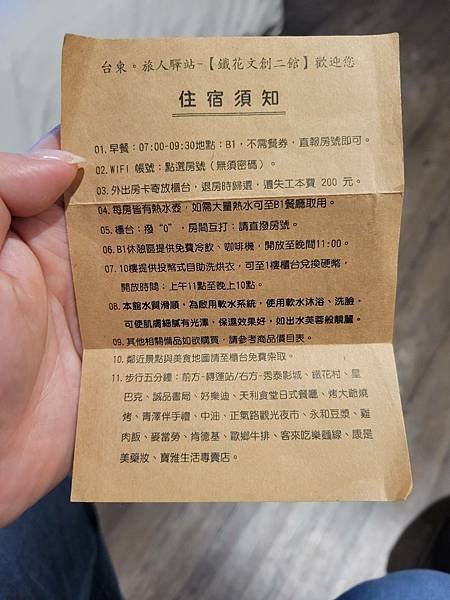 台東。旅人驛站-【鐵花文創二館】歡迎您
住宿須知
01.早餐：07:00-09:30地點：B1，不需餐券，直報房號即可。
02.WIFI 帳號：點選房號（無須密碼）。
03.外出房卡寄放櫃台，退房時歸還，遺失工本費 200 元。
04.每房皆有熱水壺，如需大量熱水可至B1餐廳取用。
05.櫃台：撥 "0"，房間互打：請直撥房號。
06.B1休憩區提供免費冷飲、咖啡機，開放至晚間11:00。
07.10樓提供投幣式自助洗烘衣，可至1樓櫃台兌換硬幣，
開放時間：上午11點至晚上10點。
08.本館水質滑順，為啟用軟水系統，使用軟水沐浴、洗臉，
可使肌膚細膩有光澤、保濕效果好，如出水芙蓉般靚麗。
09.其他相關備品如欲購買，請參考商品價目表。
10.鄰近景點與美食地圖請至櫃台免費索取。
11.步行五分鐘：前方-轉運站/右方-秀泰影城、鐵花村、星
巴克、誠品書局、好樂迪、天利食堂日式餐廳、烤大爺燒
烤、青澤伴手禮、中油、正氣路觀光夜市、永和豆漿、雞
肉飯、麥當勞、肯德基、歐鄉牛排、客來吃樂麵線、康是
美藥妝、寶雅生活專賣店。